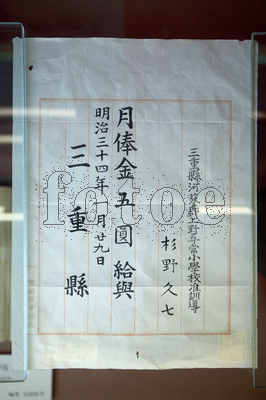 三重縣河藝郡上野尋常小學校准訓導
杉野久七
月俸金五圓給與
明治三十四年一月廿九日
三重縣
fotoe